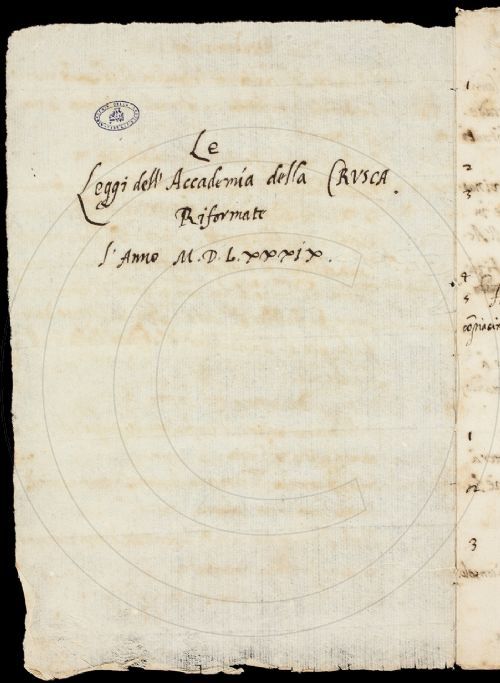 Le
Leggi dell' Accademia della CRVSCA.
Riformate
l'Anno M.D.L.xxxix.
1
2
3
4
5
1
2
3